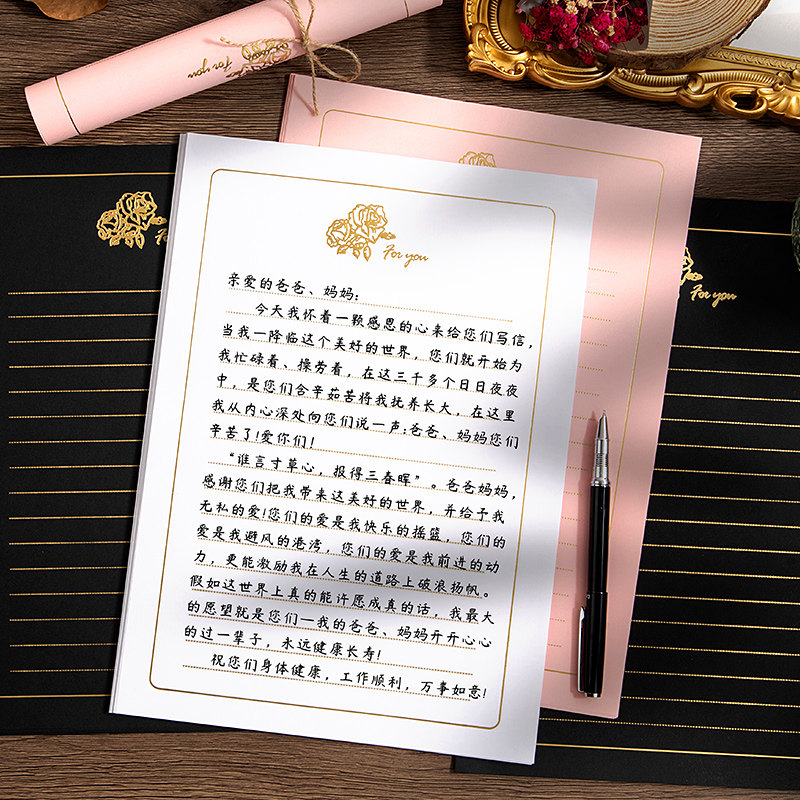 For you
For you
亲爱的爸爸、妈妈：
今天我怀着一颗感恩的心来给您们写信，
当我一降临这个美好的世界，您们就开始为
我忙碌着、操劳着，在这三千多个日日夜夜
中，是您们含辛茹苦将我抚养长大，在这里
我从内心深处向您们说一声：爸爸、妈妈您们
辛苦了！爱你们！
“谁言寸草心，报得三春晖”。爸爸妈妈，
感谢您们把我带来这美好的世界，并给予我
无私的爱！您们的爱是我快乐的摇篮，您们的
爱是我避风的港湾，您们的爱是我前进的动
力，更能激励我在人生的道路上破浪扬帆。
假如这世界上真的能许愿成真的话，我最大
的愿望就是您们一我的爸爸、妈妈开开心心
的过一辈子，永远健康长寿！
祝您们身体健康，工作顺利，万事如意！
For you